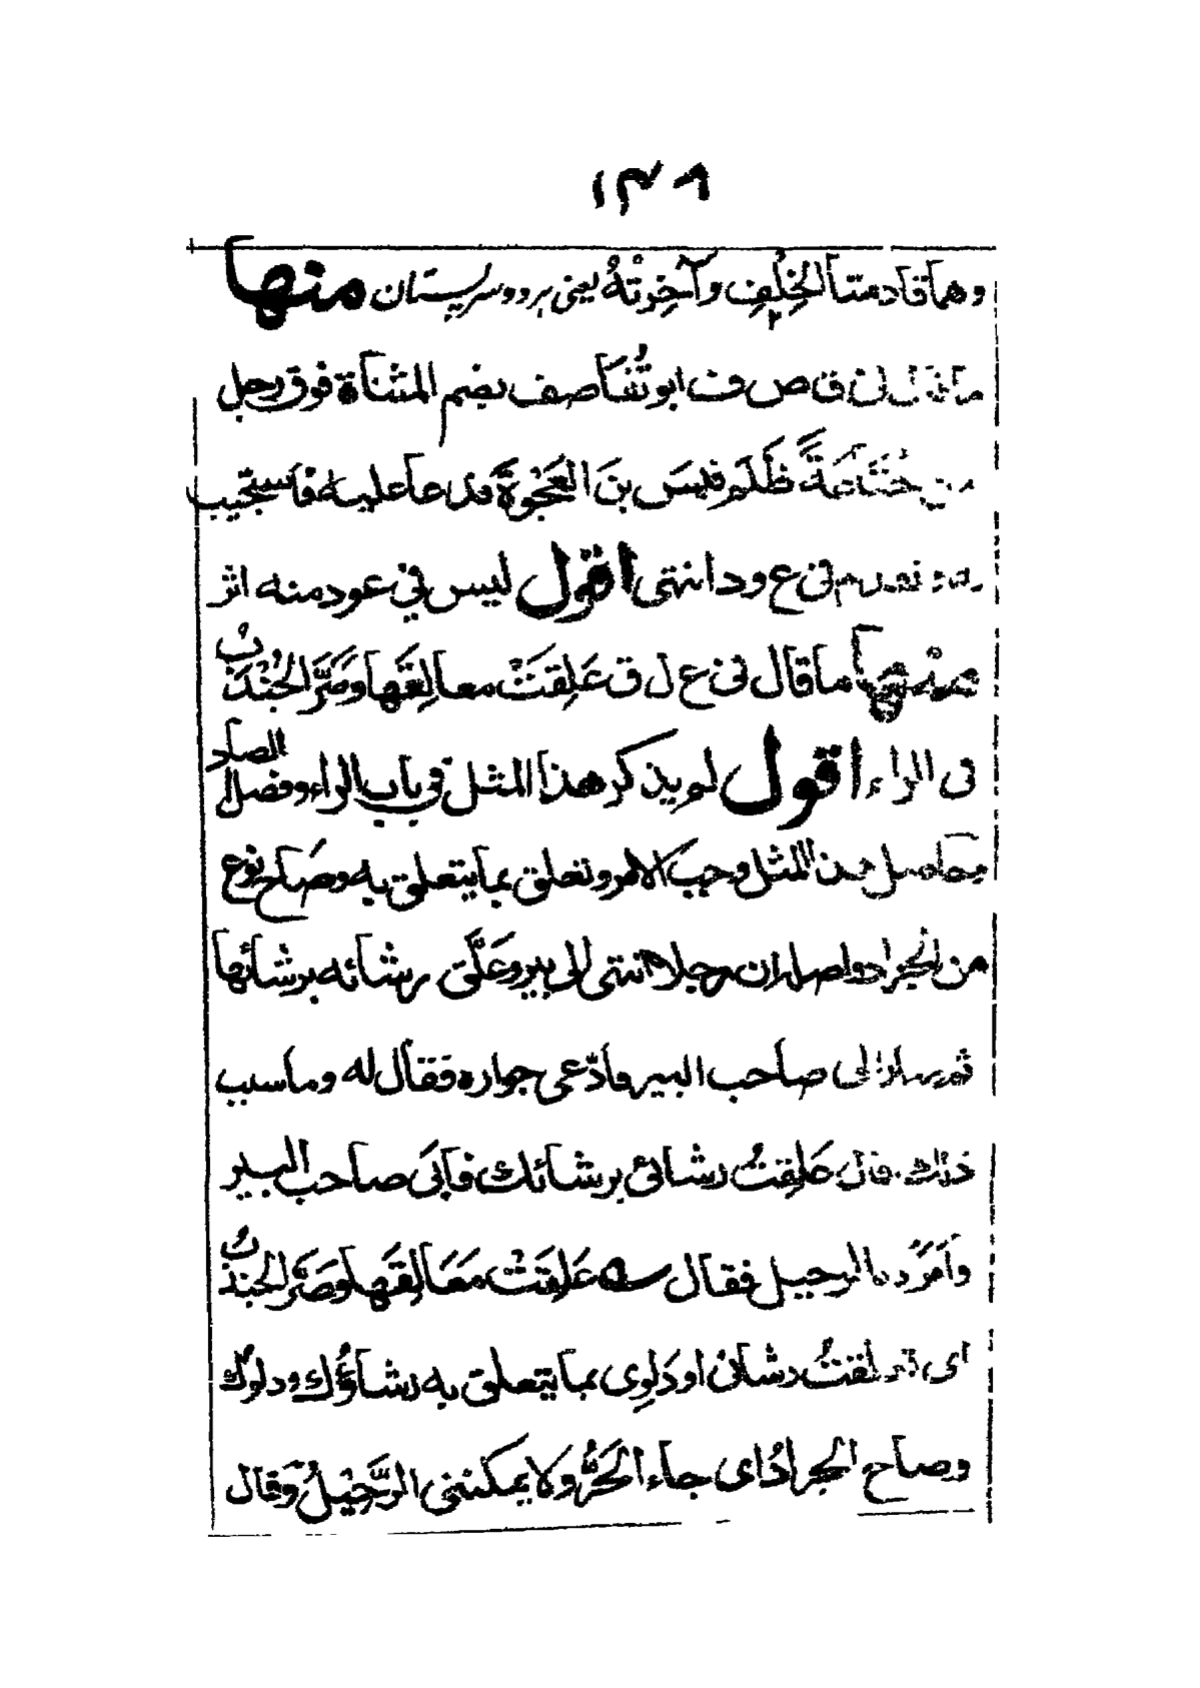 ١٣٨
وهما قادمتا الخِلْفِ وآخِرتْهُ يعنى هر دو سر پستان منها
ما قال فى ق ص ف ابو تُقَاصف بضم المثناة فوق رجل
من خُنَاعَةَ ظَلَم قيسَ بنَ العَجْوَةِ فدعا عليه فاستجيب
فى ع و د انتهى اقول ليس في عود منه اثر
منها ما قال فى ع ل ق عَلِقَتْ معالِقَها وصَرَّ الجُنْدَبُ
فى الراء اقول لم يذكر هذا المثل في باب الراء وفصل الصاد
وحاصل هذا المثل وجب الامر وتعلق بما يتعلق به وصاح نوع
من الجراد واصله ان رجلا انتهى الى بير وعَلَّق رشائه برشائها
ثم سار الى صاحب البير فادّعى جواره فقال له وما سبب
ذلك قال عَلِقتُ رشائي برشائك فأبَى صاحب البير
وأمَرَه بالرحيل فقال عَلِقَتْ مَعَالِقَها وصَرَّ الجندبُ
اى علقتُ رشائى او دَلوِى بما يتعلق به رشاؤُك ودلوُك
وصاح الجرادُ اى جاء الحَرُّ ولا يمكننى الرَّحِيْلُ وقال